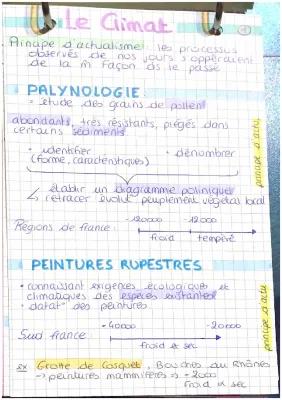 Le Climat
1
Principe d'actualisme : les processus
observés de nos jours s'opéraient
de la m̂ façon ds le passé
PALYNOLOGIE
= étude des grains de pollen
abondants, très résistants, piégés dans
certains sédiments.
• identifier
(forme, caractéristiques)
• dénombrer
↳ établir un diagramme pollinique
retracer évolut° peuplement végétal local
principe d'actu
Régions de france :
-120000
-12000
froid
tempéré
PEINTURES RUPESTRES
• connaissant exigences écologiques et
climatiques des espèces existantes
• datat° des peintures
principe d'actu
Sud france
-40000
-20000
froid & sec
ex Grotte de Cosquer, Bouches du Rhônes
→ peintures mammifères →
froid & sec